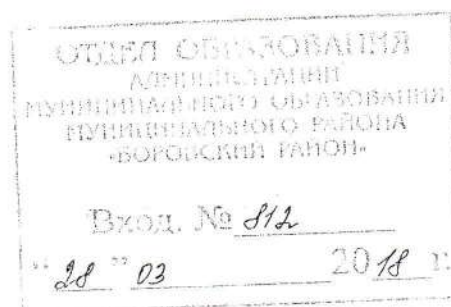 ОТДЕЛ ОБРАЗОВАНИЯ
АДМИНИСТРАЦИИ
МУНИЦИПАЛЬНОГО ОБРАЗОВАНИЯ
МУНИЦИПАЛЬНОГО РАЙОНА
«БОРОВСКИЙ РАЙОН»
Вход. № 812
"28" 03 2018 г.